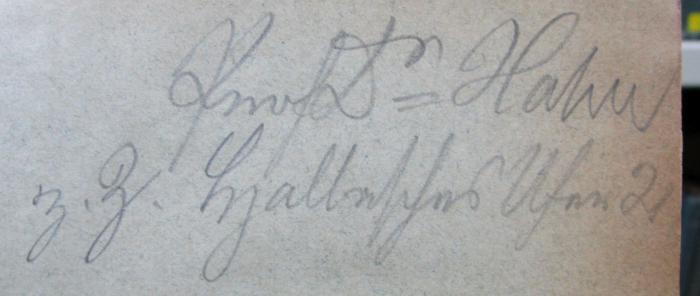 Prof Dr = Hahn
z. Z. Hallesches Ufer 21